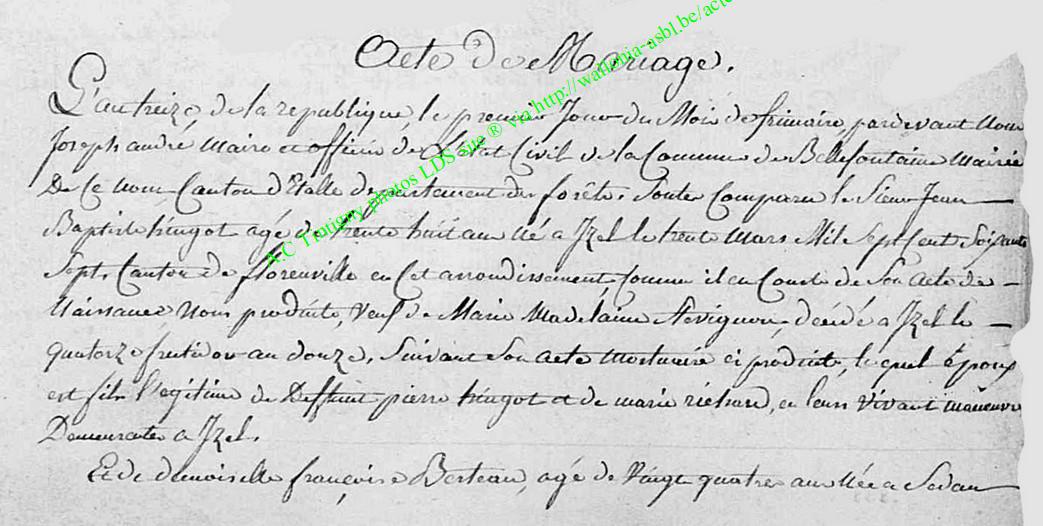 Acte de Mariage.
L'an treize de la republique, le premier Jour du Mois de frimaire, pardevant Nous
Joseph andré Maire et officier de L'Etat Civil de la Commune de Bellefontaine Mairie
De Ce Nom Canton d'Etalle departement des forêts. Sont Comparu le Sieur Jean
Baptiste hingot agé de trente huit ans Né a Izel le trente Mars Mil Sept Cent Soixante
Sept, Canton de florenville en Cet arrondissement, Comme il en Conste de Son Acte de
Naissance Nous produite, Veuf de Marie Madelaine décédé a Izel le
quatorze frutidor an douze, Suivant Son acte Mortuaire ci produite, le quel Epoux
est fils legitime de Deffunt pierre hingot et de marie richard, en leurs Vivant maneuvre
Demeurants a Izel.
Et de demoiselle françoise Berteau, agé de Vingt quatre ans Née a Sedan
A.C Tintigny photos LDS site ® via http://wallonia-asbl.be/acte